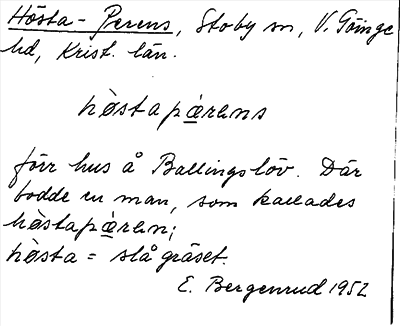 Hösta-Perens, Stoby sn, V. Göinge
hd, Krist. län.
hø̀stapærens
förr hus å Ballingslöv. Där
bodde en man, som kallades
hø̀stapæren;
hø̀sta = slå gräset.
E. Bergenrud 1952